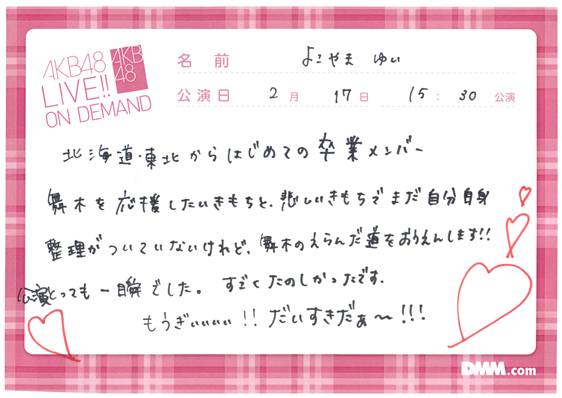 AKB48
LIVE!!
ON DEMAND
AKB
48
名前 よこやま ゆい
公演日 2月 17日 15:30 公演
北海道・東北からはじめての卒業メンバー
舞木を応援したいきもちと、悲しいきもちでまだ自分自身
整理がついていないけれど、舞木のえらんだ道をおうえんします!!
公演とっても一瞬でした。すごくたのしかったです.
もうぎぃぃぃぃ!! だいすきだぁ〜!!!
DMM.com